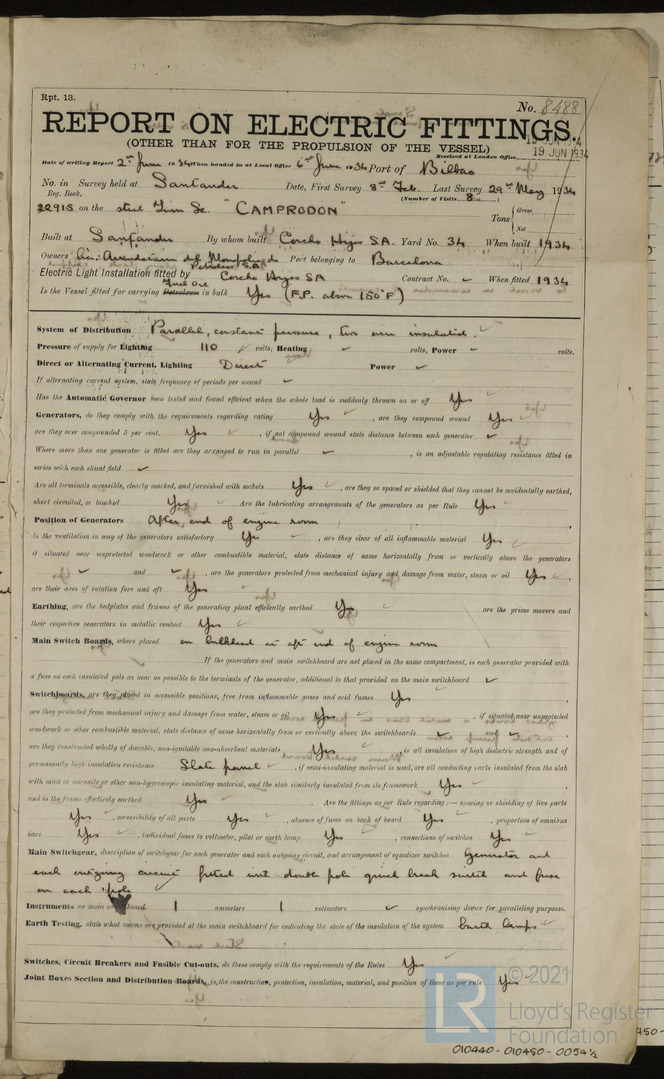 Rpt. 13.
No. 8488
REPORT ON ELECTRIC FITTINGS.
(OTHER THAN FOR THE PROPULSION OF THE VESSEL)
19 JUN 1934
Date of writing Report 2nd June 1934 When handed in at Local Office 6th June 1934 Port of Bilbao
Received at London Office
No. in Survey held at Santander Date, First Survey 8th Feb. Last Survey 29th May 1934
Reg. Book. (Number of Visits 8)
22918 on the steel "CAMPRODON" Tons { Gross Net
Built at Santander By whom built Corcho Hijos S.A. Yard No. 34 When built 1934
Owners Cia. Arrendataria del Monopolio de Petroleos S.A. Port belonging to Barcelona
Electric Light Installation fitted by Corcho Hijos SA Contract No. When fitted 1934
Is the Vessel fitted for carrying Petroleum Fuel Oil in bulk Yes (F.P. above 150°F)
System of Distribution Parallel, constant pressure, two wire insulated.
Pressure of supply for Lighting 110 volts, Heating volts, Power volts.
Direct or Alternating Current, Lighting Direct Power
If alternating current system, state frequency of periods per second
Has the Automatic Governor been tested and found efficient when the whole load is suddenly thrown on or off Yes
Generators, do they comply with the requirements regarding rating Yes, are they compound wound Yes
are they over compounded 5 per cent. Yes, if not compound wound state distance between each generator
Where more than one generator is fitted are they arranged to run in parallel, is an adjustable regulating resistance fitted in
series with each shunt field
Are all terminals accessible, clearly marked, and furnished with sockets Yes, are they so spaced or shielded that they cannot be accidentally earthed,
short circuited, or touched Yes Are the lubricating arrangements of the generators as per Rule Yes
Position of Generators After end of engine room
is the ventilation in way of the generators satisfactory Yes, are they clear of all inflammable material Yes
if situated near unprotected woodwork or other combustible material, state distance of same horizontally from or vertically above the generators
and, are the generators protected from mechanical injury and damage from water, steam or oil Yes,
are their axes of rotation fore and aft Yes
Earthing, are the bedplates and frames of the generating plant efficiently earthed Yes are the prime movers and
their respective generators in metallic contact Yes
Main Switch Boards, where placed on bulkhead at aft end of engine room
If the generators and main switchboard are not placed in the same compartment, is each generator provided with
a fuse on each insulated pole as near as possible to the terminals of the generator, additional to that provided on the main switchboard
Switchboards, are they placed in accessible positions, free from inflammable gases and acid fumes Yes,
are they protected from mechanical injury and damage from water, steam or oil Yes, if situated near unprotected
woodwork or other combustible material, state distance of same horizontally from or vertically above the switchboards and
are they constructed wholly of durable, non-ignitable non-absorbent materials Yes, is all insulation of high dielectric strength and of
permanently high insulation resistance Slate panel, if semi-insulating material is used, are all conducting parts insulated from the slab
with mica or micanite or other non-hygroscopic insulating material, and the slab similarly insulated from its framework Yes,
and is the frame effectively earthed Yes Are the fittings as per Rule regarding:— spacing or shielding of live parts
Yes, accessibility of all parts Yes, absence of fuses on back of board Yes, proportion of omnibus
bars Yes, individual fuses to voltmeter, pilot or earth lamp Yes, connections of switches Yes
Main Switchgear, description of switchgear for each generator and each outgoing circuit, and arrangement of equalizer switches Generator and
each outgoing circuit fitted with double pole quick break switch and fuse
on each pole
Instruments on main switchboard 1 ammeters 1 voltmeters synchronising device for paralleling purposes.
Earth Testing, state what means are provided at the main switchboard for indicating the state of the insulation of the system Earth lamps
Switches, Circuit Breakers and Fusible Cut-outs, do these comply with the requirements of the Rules Yes
Joint Boxes Section and Distribution Boards, is the construction, protection, insulation, material, and position of these as per rule Yes
LR
©2021
Lloyd's Register
Foundation
010440-010450-0054½